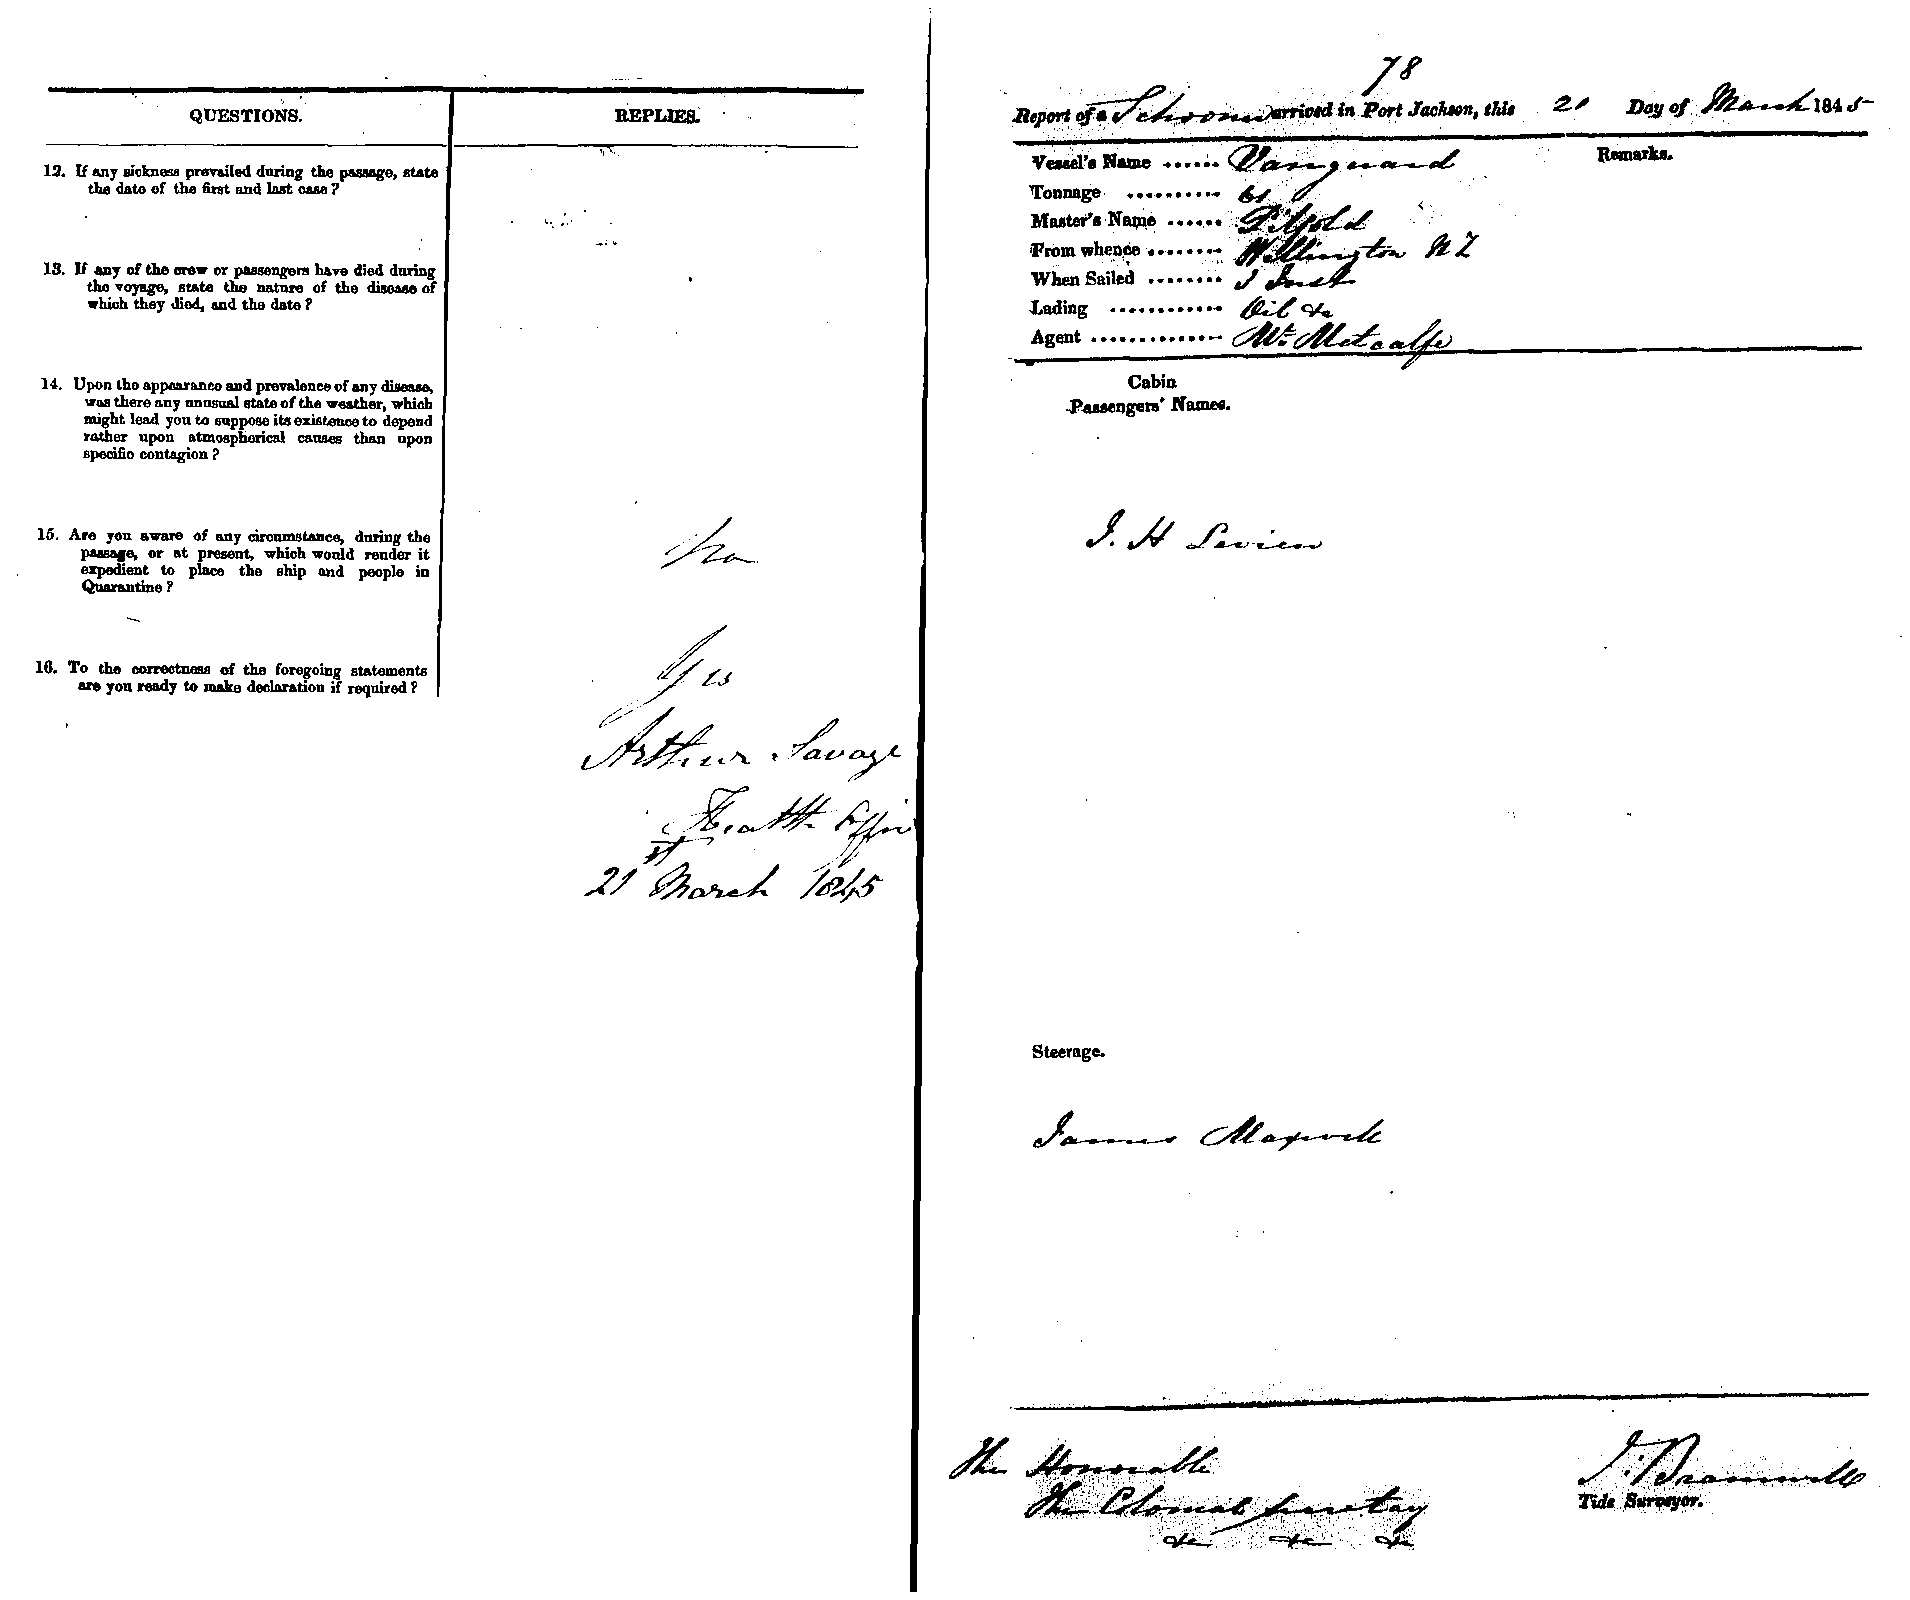 QUESTIONS.
REPLIES.
12. If any sickness prevailed during the passage, state
the date of the first and last case ?
13. If any of the crew or passengers have died during
the voyage, state the nature of the disease of
which they died, and the date ?
14. Upon the appearance and prevalence of any disease,
was there any unusual state of the weather, which
might lead you to suppose its existence to depend
rather upon atmospherical causes than upon
specific contagion ?
15. Are you aware of any circumstance, during the
passage, or at present, which would render it
expedient to place the ship and people in
Quarantine ?
No
16. To the correctness of the foregoing statements
are you ready to make declaration if required ?
Yes
Arthur Savage
Health Offi
21st March 1845
78
Report of a Schooner arrived in Port Jackson, this 21 Day of March 1845
Remarks.
Vessel's Name ...... Vanguard
Tonnage .......... 61
Master's Name ......
From whence ........ Wellington NZ
When Sailed ........ Inst
Lading ............ Oil &c
Agent .............. Mr. Metcalfe
Cabin
Passengers' Names.
J. H Levien
Steerage.
James Maxwell
The Honorable
The Colonial Secretary
&c &c &c
J. Bramwell
Tide Surveyor.